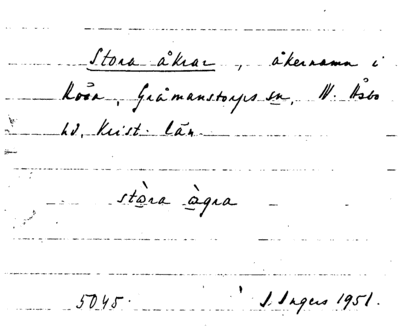 Stora åkrar, åkernamn i
Röön, Gråmanstorps sn, N. Åsbo
hd, Krist. län
stàra àgra
5045.
I. Ingers 1951.